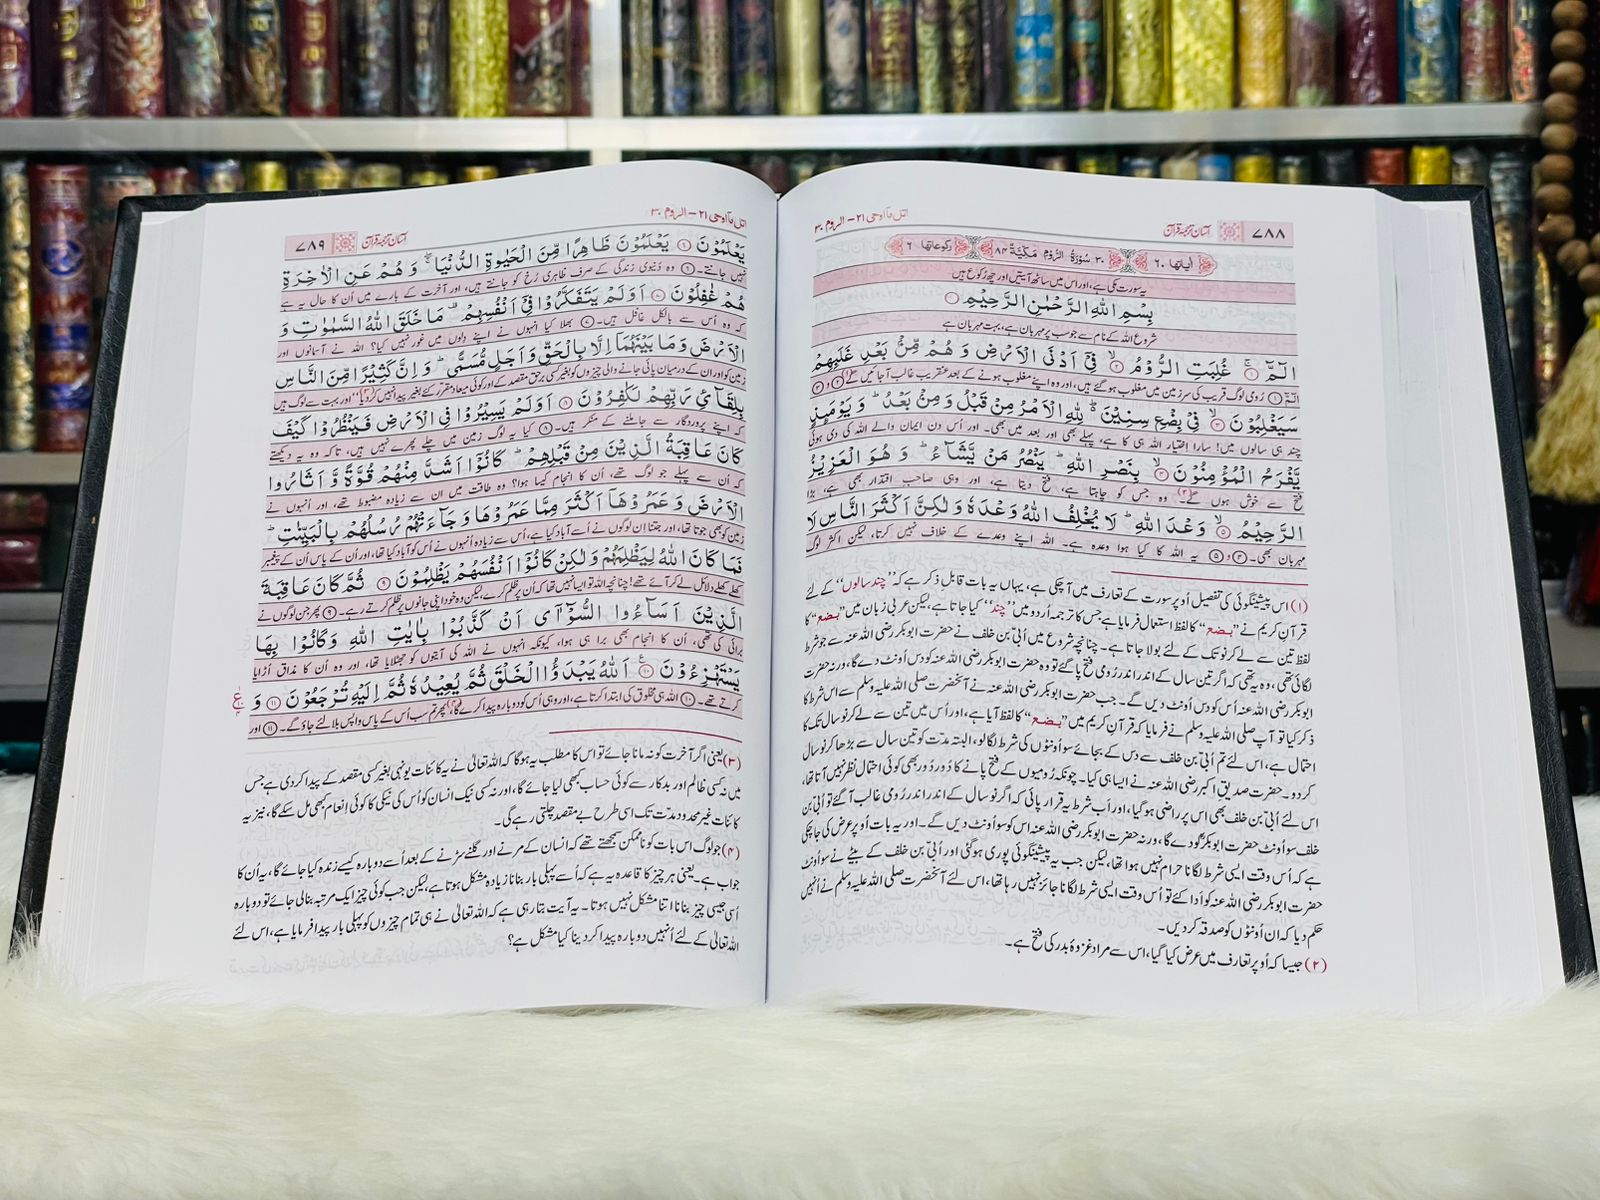 آسان ترجمۂ قرآن
۷۸۸
اتل مآ اوحی ۲۱ – الروم ۳۰
اٰیاتہا ۶۰
۳۰ سُوْرَۃُ الرُّوْمِ مَکِّیَّۃٌ ۸۴
رکوعاتہا ۶
یہ سورت مکی ہے، اور اس میں ساٹھ آیتیں اور چھ رکوع ہیں
بِسْمِ اللهِ الرَّحْمٰنِ الرَّحِيْمِ
شروع اللہ کے نام سے جو سب پر مہربان ہے، بہت مہربان ہے
الٓمّٓ ۚ۝۱ غُلِبَتِ الرُّوْمُ ۙ۝۲ فِيْۤ اَدْنَى الْاَرْضِ وَ هُمْ مِّنْۢ بَعْدِ غَلَبِهِمْ
الٓمّٓ ﴿۱﴾ رُومی لوگ قریب کی سرزمین میں مغلوب ہوگئے ہیں، اور وہ اپنے مغلوب ہونے کے بعد عنقریب غالب آجائیں گے ﴿۲ و ۳﴾
سَيَغْلِبُوْنَ ۙ۝۳ فِيْ بِضْعِ سِنِيْنَ ؕ لِلّٰهِ الْاَمْرُ مِنْ قَبْلُ وَ مِنْۢ بَعْدُ ؕ وَ يَوْمَىِٕذٍ
چند ہی سالوں میں! سارا اختیار اللہ ہی کا ہے، پہلے بھی اور بعد میں بھی۔ اور اُس دن ایمان والے اللہ کی دی ہوئی
يَّفْرَحُ الْمُؤْمِنُوْنَ ۙ۝۴ بِنَصْرِ اللهِ ؕ يَنْصُرُ مَنْ يَّشَآءُ ؕ وَ هُوَ الْعَزِيْزُ
فتح سے خوش ہوں گے۔(۲) وہ جس کو چاہتا ہے، فتح دیتا ہے، اور وہی صاحبِ اقتدار بھی ہے، بڑا
الرَّحِيْمُ ۙ۝۵ وَعْدَ اللهِ ؕ لَا يُخْلِفُ اللهُ وَعْدَهٗ وَ لٰكِنَّ اَكْثَرَ النَّاسِ لَا
مہربان بھی۔ ﴿۴ و ۵﴾ یہ اللہ کا کیا ہوا وعدہ ہے۔ اللہ اپنے وعدے کے خلاف نہیں کرتا، لیکن اکثر لوگ
(۱) اس پیشینگوئی کی تفصیل اُوپر سورت کے تعارف میں آچکی ہے، یہاں یہ بات قابلِ ذکر ہے کہ ’’چند سالوں‘‘ کے لئے
قرآنِ کریم نے ’’بضع‘‘ کا لفظ استعمال فرمایا ہے جس کا ترجمہ اُردو میں ’’چند‘‘ کیا جاتا ہے، لیکن عربی زبان میں ’’بضع‘‘ کا
لفظ تین سے لے کر نو تک کے لئے بولا جاتا ہے۔ چنانچہ شروع میں اُبیّ بن خلف نے حضرت ابوبکر رضی اللہ عنہ سے جو شرط
لگائی تھی، وہ یہ تھی کہ اگر تین سال کے اندر اندر رُومی فتح پاگئے تو وہ حضرت ابوبکر رضی اللہ عنہ کو دس اُونٹ دے گا، ورنہ حضرت
ابوبکر رضی اللہ عنہ اُس کو دس اُونٹ دیں گے۔ جب حضرت ابوبکر رضی اللہ عنہ نے آنحضرت صلی اللہ علیہ وسلم سے اس شرط کا
ذکر کیا تو آپ صلی اللہ علیہ وسلم نے فرمایا کہ قرآنِ کریم میں ’’بضع‘‘ کا لفظ آیا ہے، اور اُس میں تین سے لے کر نو سال تک کا
احتمال ہے، اس لئے تم اُبیّ بن خلف سے دس کے بجائے سو اُونٹوں کی شرط لگالو، البتہ مدّت کو تین سال سے بڑھا کر نو سال
کردو۔ حضرت صدیقِ اکبر رضی اللہ عنہ نے ایسا ہی کیا۔ چونکہ رُومیوں کے فتح پانے کا دُور دُور بھی کوئی احتمال نظر نہیں آتا تھا،
اس لئے اُبیّ بن خلف بھی اس پر راضی ہوگیا، اور اَب شرط یہ قرار پائی کہ اگر نو سال کے اندر اندر رُومی غالب آگئے تو اُبیّ بن
خلف سو اُونٹ حضرت ابوبکرؓ کو دے گا، ورنہ حضرت ابوبکر رضی اللہ عنہ اس کو سو اُونٹ دیں گے۔ اور یہ بات اُوپر عرض کی جاچکی
ہے کہ اُس وقت ایسی شرط لگانا حرام نہیں ہوا تھا، لیکن جب یہ پیشینگوئی پوری ہوگئی اور اُبیّ بن خلف کے بیٹے نے سو اُونٹ
حضرت ابوبکر رضی اللہ عنہ کو اَدا کئے تو اُس وقت ایسی شرط لگانا جائز نہیں رہا تھا، اس لئے آنحضرت صلی اللہ علیہ وسلم نے اُنہیں
حکم دیا کہ ان اُونٹوں کو صدقہ کردیں۔
(۲) جیسا کہ اُوپر تعارف میں عرض کیا گیا، اس سے مراد غزوۂ بدر کی فتح ہے۔
اتل مآ اوحی ۲۱ – الروم ۳۰
آسان ترجمۂ قرآن
۷۸۹
يَعْلَمُوْنَ ۝۶ يَعْلَمُوْنَ ظَاهِرًا مِّنَ الْحَيٰوةِ الدُّنْيَا ۖۚ وَ هُمْ عَنِ الْاٰخِرَةِ
نہیں جانتے۔ ﴿۶﴾ وہ دُنیوی زندگی کے صرف ظاہری رُخ کو جانتے ہیں، اور آخرت کے بارے میں اُن کا حال یہ ہے
هُمْ غٰفِلُوْنَ ۝۷ اَوَ لَمْ يَتَفَكَّرُوْا فِيْۤ اَنْفُسِهِمْ ۫ مَا خَلَقَ اللهُ السَّمٰوٰتِ وَ
کہ وہ اُس سے بالکل غافل ہیں۔ ﴿۷﴾ بھلا کیا اُنہوں نے اپنے دِلوں میں غور نہیں کیا؟ اللہ نے آسمانوں اور
الْاَرْضَ وَ مَا بَيْنَهُمَاۤ اِلَّا بِالْحَقِّ وَ اَجَلٍ مُّسَمًّى ؕ وَ اِنَّ كَثِيْرًا مِّنَ النَّاسِ
زمین کو اور ان کے درمیان پائی جانے والی چیزوں کو بغیر کسی برحق مقصد کے اور کوئی میعاد مقرر کئے بغیر پیدا نہیں کر دیا،(۳) اور بہت سے لوگ ہیں
بِلِقَآئِ رَبِّهِمْ لَكٰفِرُوْنَ ۝۸ اَوَ لَمْ يَسِيْرُوْا فِي الْاَرْضِ فَيَنْظُرُوْا كَيْفَ
کہ اپنے پروردگار سے جاملنے کے منکر ہیں۔ ﴿۸﴾ کیا یہ لوگ زمین میں چلے پھرے نہیں ہیں، تاکہ وہ یہ دیکھتے
كَانَ عَاقِبَةُ الَّذِيْنَ مِنْ قَبْلِهِمْ ؕ كَانُوْۤا اَشَدَّ مِنْهُمْ قُوَّةً وَّ اَثَارُوا
کہ اُن سے پہلے جو لوگ تھے، اُن کا انجام کیسا ہوا؟ وہ طاقت میں ان سے زیادہ مضبوط تھے، اور اُنہوں نے
الْاَرْضَ وَ عَمَرُوْهَاۤ اَكْثَرَ مِمَّا عَمَرُوْهَا وَ جَآءَتْهُمْ رُسُلُهُمْ بِالْبَيِّنٰتِ ؕ
زمین کو بھی جوتا تھا، اور جتنا اِن لوگوں نے اُسے آباد کیا ہے، اُس سے زیادہ اُنہوں نے اُس کو آباد کیا تھا، اور اُن کے پاس اُن کے پیغمبر
فَمَا كَانَ اللهُ لِيَظْلِمَهُمْ وَ لٰكِنْ كَانُوْۤا اَنْفُسَهُمْ يَظْلِمُوْنَ ۝۹ ثُمَّ كَانَ عَاقِبَةَ
کھلے کھلے دلائل لے کر آئے تھے! چنانچہ اللہ تو ایسا نہیں تھا کہ اُن پر ظلم کرے، لیکن وہ خود اپنی جانوں پر ظلم کرتے رہے۔ ﴿۹﴾ پھر جن لوگوں نے
الَّذِيْنَ اَسَآءُوا السُّوْٓاٰى اَنْ كَذَّبُوْا بِاٰيٰتِ اللهِ وَ كَانُوْا بِهَا
برائی کی تھی، اُن کا انجام بھی برا ہی ہوا، کیونکہ اُنہوں نے اللہ کی آیتوں کو جھٹلایا تھا، اور وہ اُن کا مذاق اُڑایا
يَسْتَهْزِءُوْنَ ۝۱۰ اَللهُ يَبْدَؤُا الْخَلْقَ ثُمَّ يُعِيْدُهٗ ثُمَّ اِلَيْهِ تُرْجَعُوْنَ ۝۱۱ وَ
کرتے تھے۔ ﴿۱۰﴾ اللہ ہی مخلوق کی ابتدا کرتا ہے، اور وہی اُس کو دوبارہ پیدا کرے گا،(۴) پھر تم سب اُسی کے پاس واپس بلا لئے جاؤ گے۔ ﴿۱۱﴾ اور
(۳) یعنی اگر آخرت کو نہ مانا جائے تو اس کا مطلب یہ ہوگا کہ اللہ تعالیٰ نے یہ کائنات یونہی بغیر کسی مقصد کے پیدا کردی ہے جس
میں نہ کسی ظالم اور بدکار سے کوئی حساب کبھی لیا جائے گا، اور نہ کسی نیک انسان کو اُس کی نیکی کا کوئی اِنعام کبھی مل سکے گا، نیز یہ
کائنات غیر محدود مدّت تک اسی طرح بے مقصد چلتی رہے گی۔
(۴) جو لوگ اس بات کو ناممکن سمجھتے تھے کہ انسان کے مرنے اور گلنے سڑنے کے بعد اُسے دوبارہ کیسے زندہ کیا جائے گا، یہ اُن کا
جواب ہے۔ یعنی ہر چیز کا قاعدہ یہ ہے کہ اُسے پہلی بار بنانا زیادہ مشکل ہوتا ہے، لیکن جب کوئی چیز ایک مرتبہ بنالی جائے تو دوبارہ
اُسی جیسی چیز بنانا اتنا مشکل نہیں ہوتا۔ یہ آیت بتارہی ہے کہ اللہ تعالیٰ نے ہی تمام چیزوں کو پہلی بار پیدا فرمایا ہے، اس لئے
اللہ تعالیٰ کے لئے اُنہیں دوبارہ پیدا کردینا کیا مشکل ہے؟